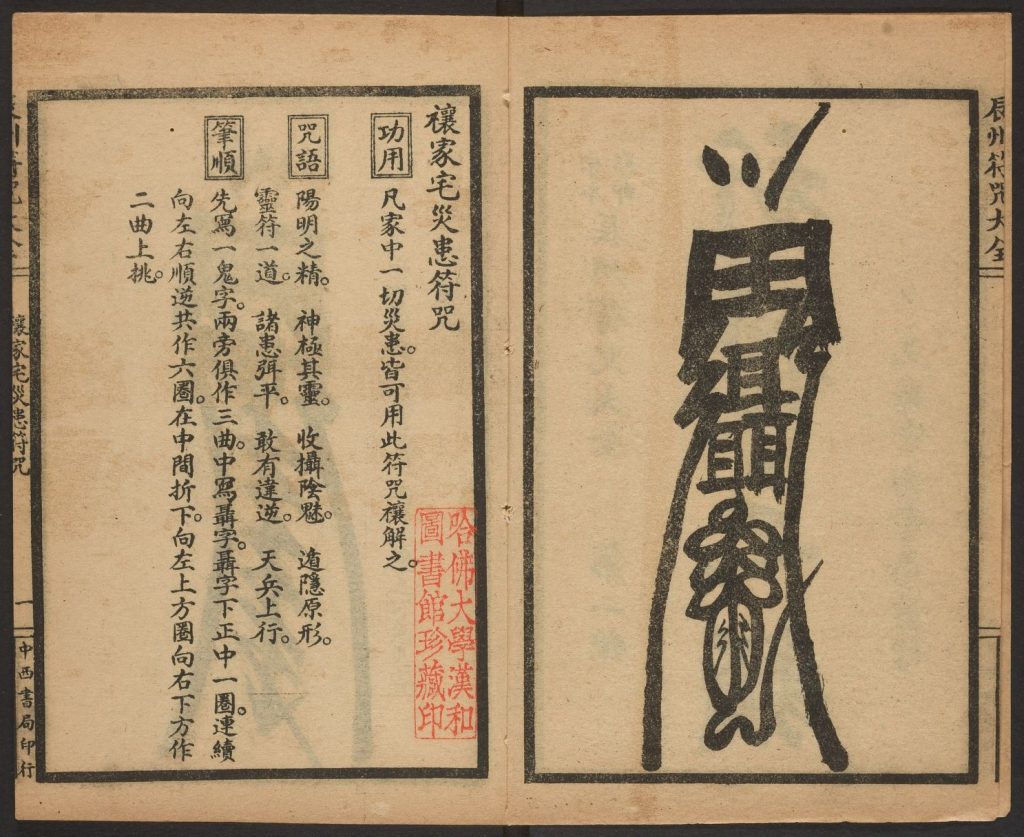 辰州符咒大全
聶
禳家宅災患符咒
功用
凡家中一切災患。皆可用此符咒禳解之。
咒語
陽明之精。神極其靈。收攝陰魅。遁隱原形。
靈符一道。諸患弭平。敢有違逆。天兵上行。
筆順
先寫一鬼字。兩旁俱作三曲。中寫聶字。聶字下正中一圈。連續
向左右順逆共作六圈。在中間折下。向左上方圈向右下方作
二曲上挑。
哈佛大學漢和
圖書館珍藏印
禳家宅災患符咒
一
中西書局印行